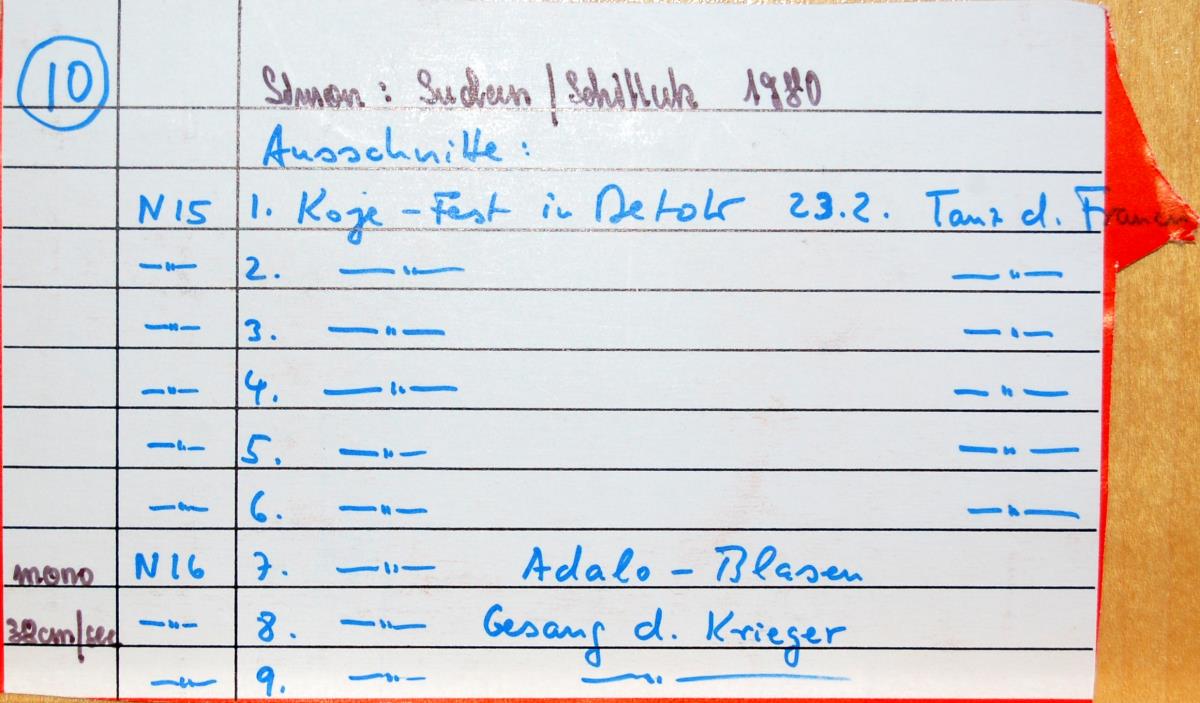 10 Simon: Sudan/Schilluk 1980
Ausschnitte:
N15 1. Koje-Fest in Detok 23.2. Tanz d. Frauen
—"— 2. —"— —"—
—"— 3. —"— —"—
—"— 4. —"— —"—
—"— 5. —"— —"—
—"— 6. —"— —"—
mono N16 7. —"— Adalo-Blasen
cm/sec —"— 8. —"— Gesang d. Krieger
—"— 9. —"— —"—